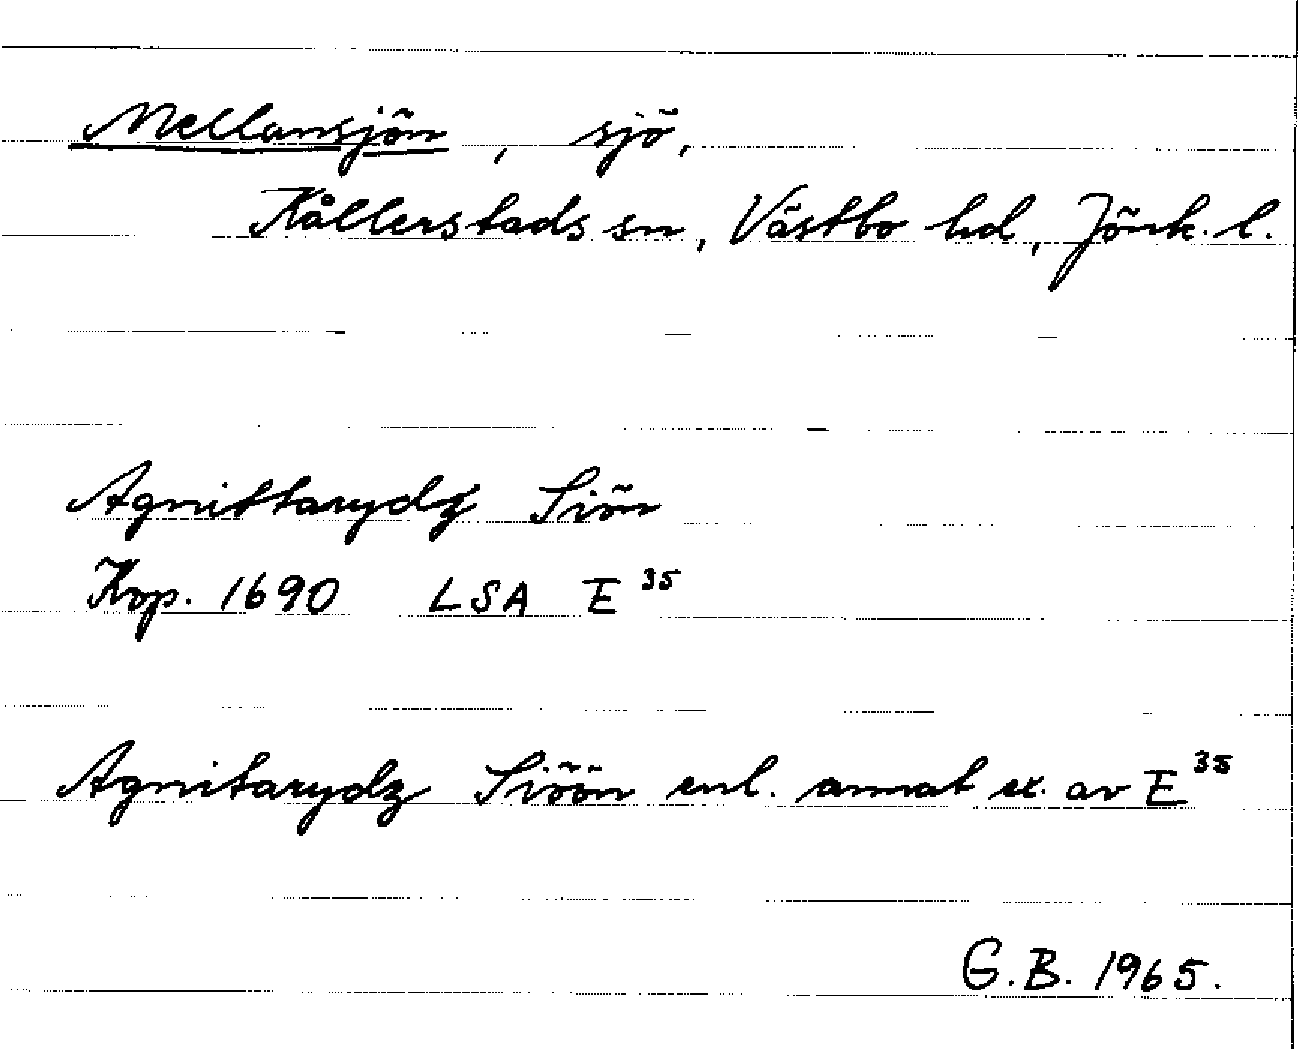 Mellansjön, sjö,
Kållerstads sn, Västbo hd, Jönk. l.
Agnittarydz Siön
Kop. 1690 LSA E 35
Agnitarydz Siöön enl. annat ex. av E 35
G.B. 1965.